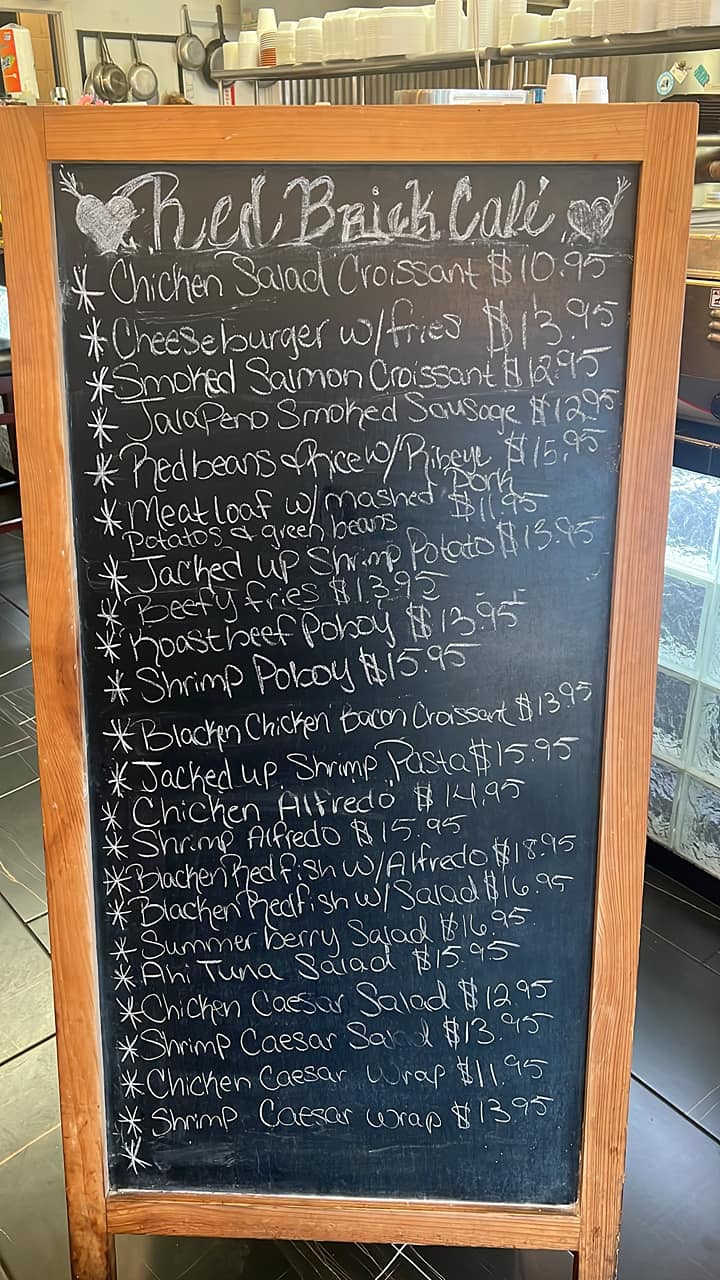 Red Brick Café
* Chicken Salad Croissant $10.95
* Cheeseburger w/fries $13.95
* Smoked Salmon Croissant $12.95
* JalaPeno Smoked Sausage $12.95
* Redbeans & Rice w/Ribeye $15.95
Pork
* Meatloaf w/mashed $11.95
Potatos & green beans
* Jacked up Shrimp Potato $15.95
* Beefy fries $13.95
* Roastbeef Poboy $13.95
* Shrimp Poboy $15.95
* Blacken Chicken Bacon Croissant $13.95
* Jacked up Shrimp Pasta $15.95
* Chicken Alfredo $14.95
* Shrimp Alfredo $15.95
* Blacken Redfish w/Alfredo $18.95
* Blacken Redfish w/Salad $16.95
* Summer berry Salad $16.95
* Ahi Tuna Salad $15.95
* Chicken Caesar Salad $12.95
* Shrimp Caesar Salad $13.95
* Chicken Caesar Wrap $11.95
* Shrimp Caesar wrap $13.95
*